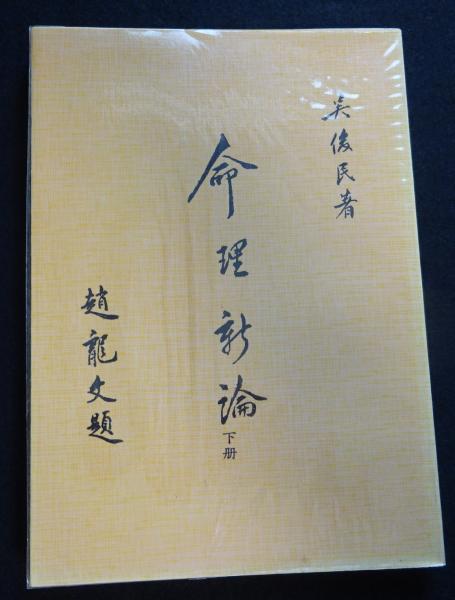 吳俊民著
命理新論
下册
趙龍文題